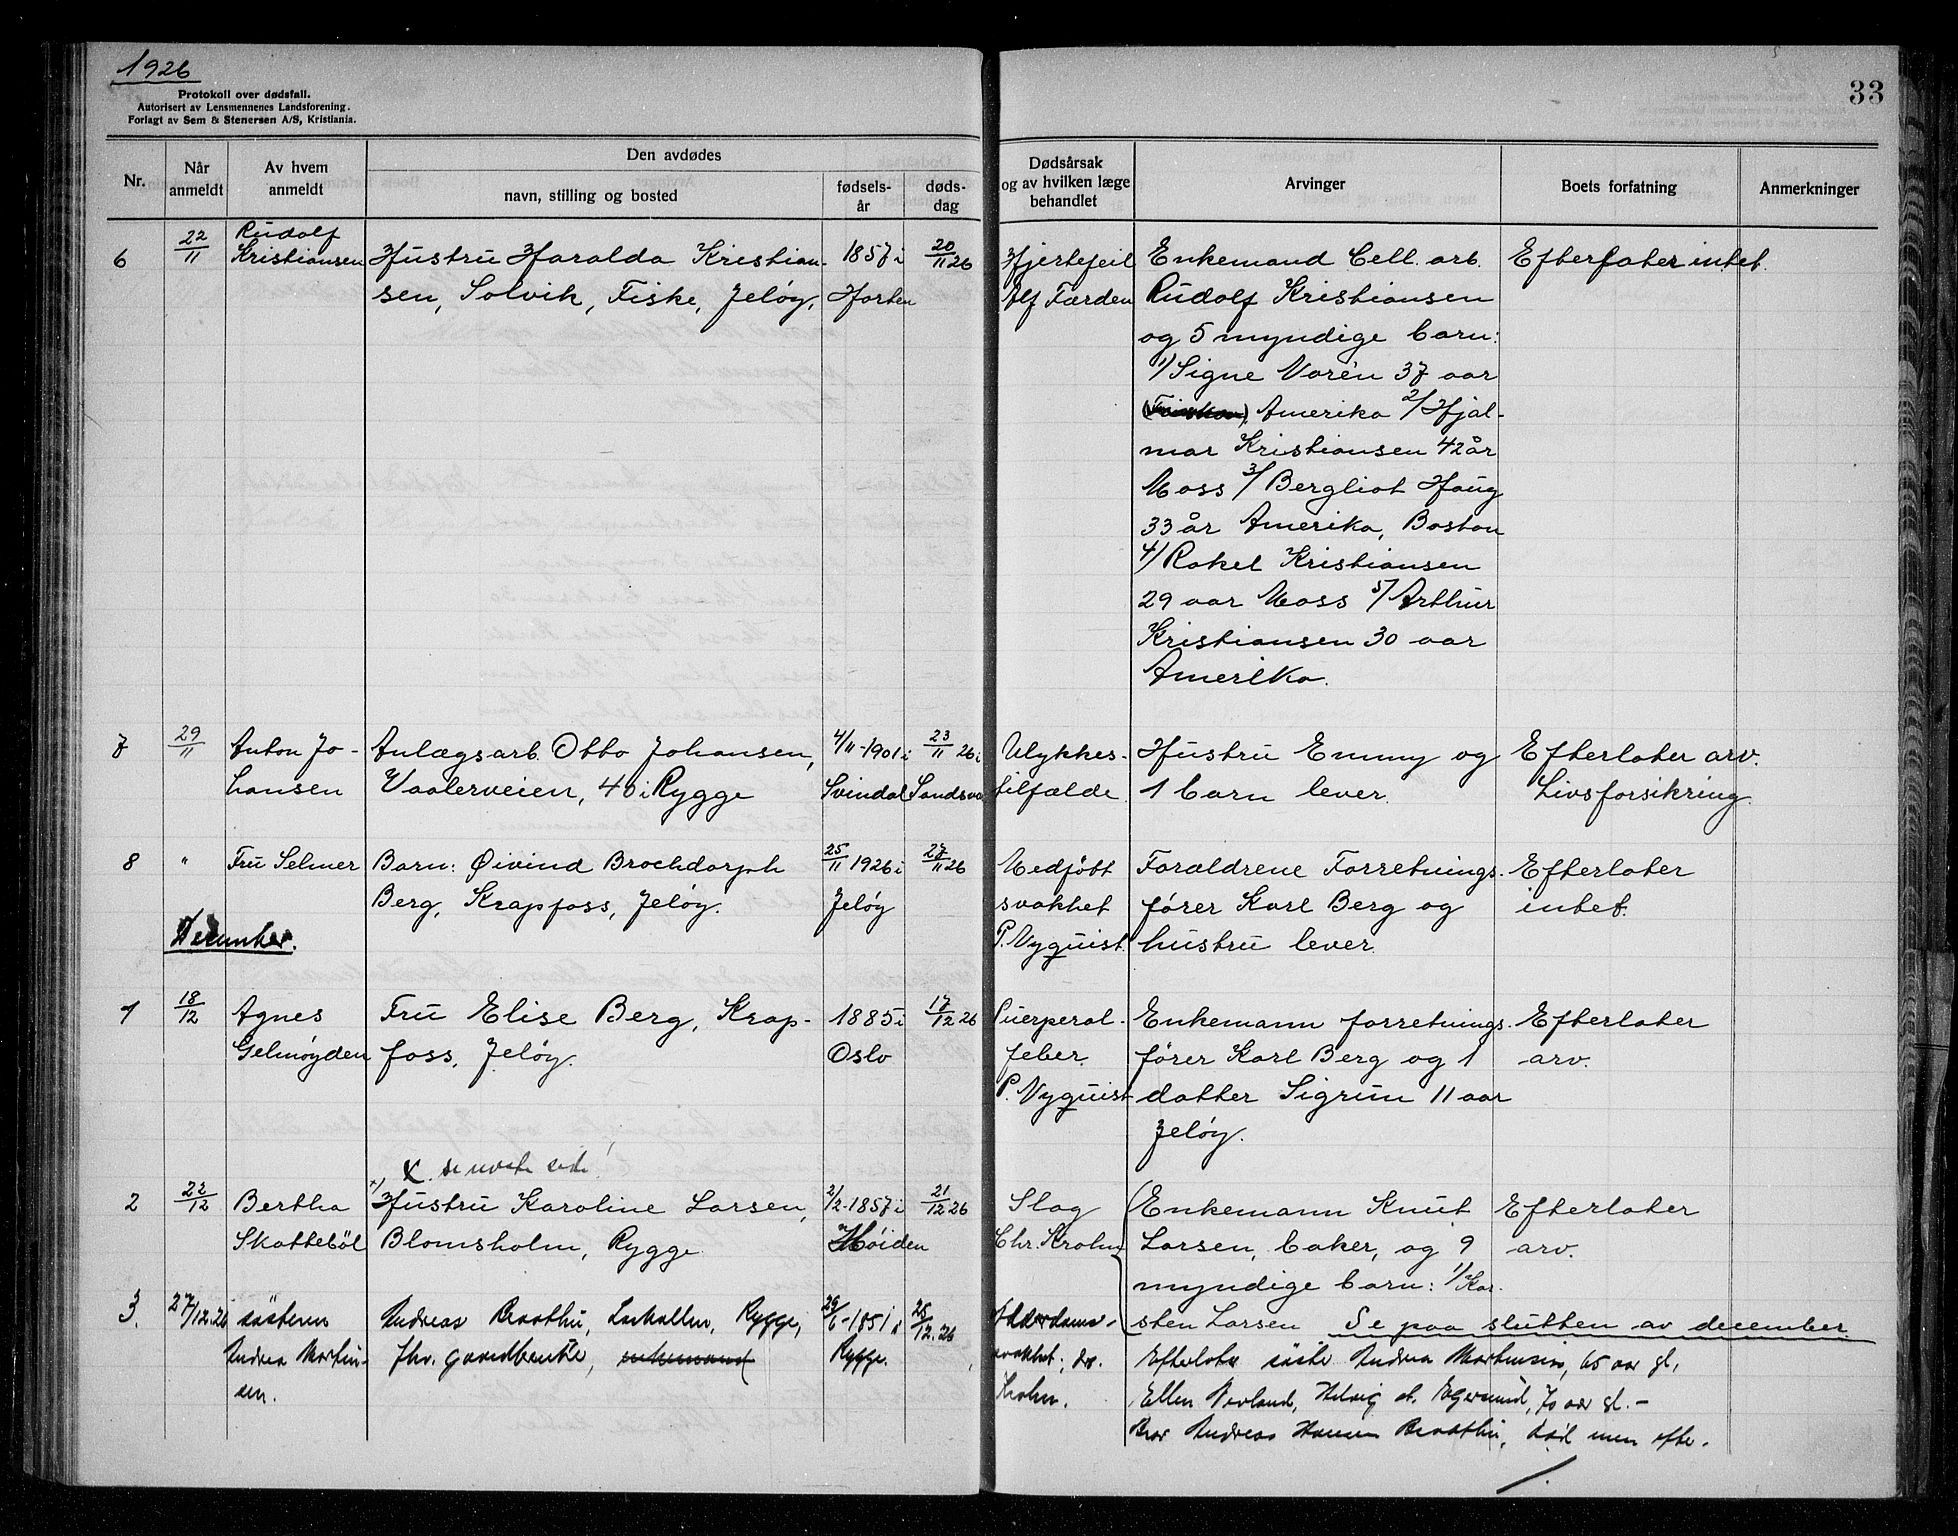 1926
Protokoll over dødsfall.
Autorisert av Lensmennenes Landsforening.
Forlagt av Sem & Stenersen A/S, Kristiania.
33
Nr.
Når anmeldt
Av hvem anmeldt
Den avdødes
navn, stilling og bosted
fødsels-år
døds-dag
Dødsårsak og av hvilken læge behandlet
Arvinger
Boets forfatning
Anmerkninger
6
22/11
Rudolf
Kristiansen
Hustru Haralda Kristian-
sen, Solvik, Fiske, Jeløy,
1857 i
Horten
20/11 26
Hjertefeil
Alf Færden
Enkemand Cell. arb.
Rudolf Kristiansen
og 5 myndige barn:
1/ Signe Norén 37 aar
Amerika 2/ Hjal-
mar Kristiansen 42 år
Moss 3/ Bergliot Haug
33 år Amerika, Boston
4/ Rakel Kristiansen
29 aar Moss 5/ Arthur
Kristiansen 30 aar
Amerika.
Efterlater intet.
7
29/11
Anton Jo-
hansen
Anlægsarb. Otto Johansen,
Vaalerveien, 40 i Rygge
4/11-1901 i
Svindal
23/11 26 i
Ulykkes-
tilfælde.
Hustru Emmy og
1 barn lever.
Efterlater arv.
Livsforsikring.
8
"
Fru Selmer
Barn: Øivind Brochdorph
Berg, Krapfoss, Jeløy.
25/11 1926 i
Jeløy
27/11 26
Medfödt
svakhet
P. Nyquist.
Forældrene Forretnings-
fører Karl Berg og
hustru lever.
Efterlater
intet.
December.
1
18/12
Agnes
Gelmöyden
Fru Elise Berg, Krap-
foss, Jeløy.
1885 i
Oslo
17/12 26
Puerperal-
feber.
P. Nyquist
Enkemann forretnings-
fører Karl Berg og 1
datter Sigrun 11 aar
Jeløy.
Efterlater
arv.
x. se neste side!
2
22/12
Bertha
Skattebøl
x) Hustru Karoline Larsen,
Blomsholm, Rygge
2/2-1857 i
Høiden
21/12 26
Slag
Chr. Krohn
Enkemann Knut
Larsen, baker, og 9
myndige barn: 1/ Kar-
sten Larsen Se paa slutten av december.
Efterlater
arv.
3.
27/12.26
søsteren
Andrea Martin-
sen.
Andreas Braathu, Rygge,
fhv. gaardbruker, enkemand
29/6-1851 i
Rygge.
25/12.26
Alderdoms-
svakhet; dr.
Krohn.
Efterlater søster Andrea 65 aar gl.
Ellen Egersund, 70 aar gl. -
Bror Andreas Hansen Braathu, død men efter-